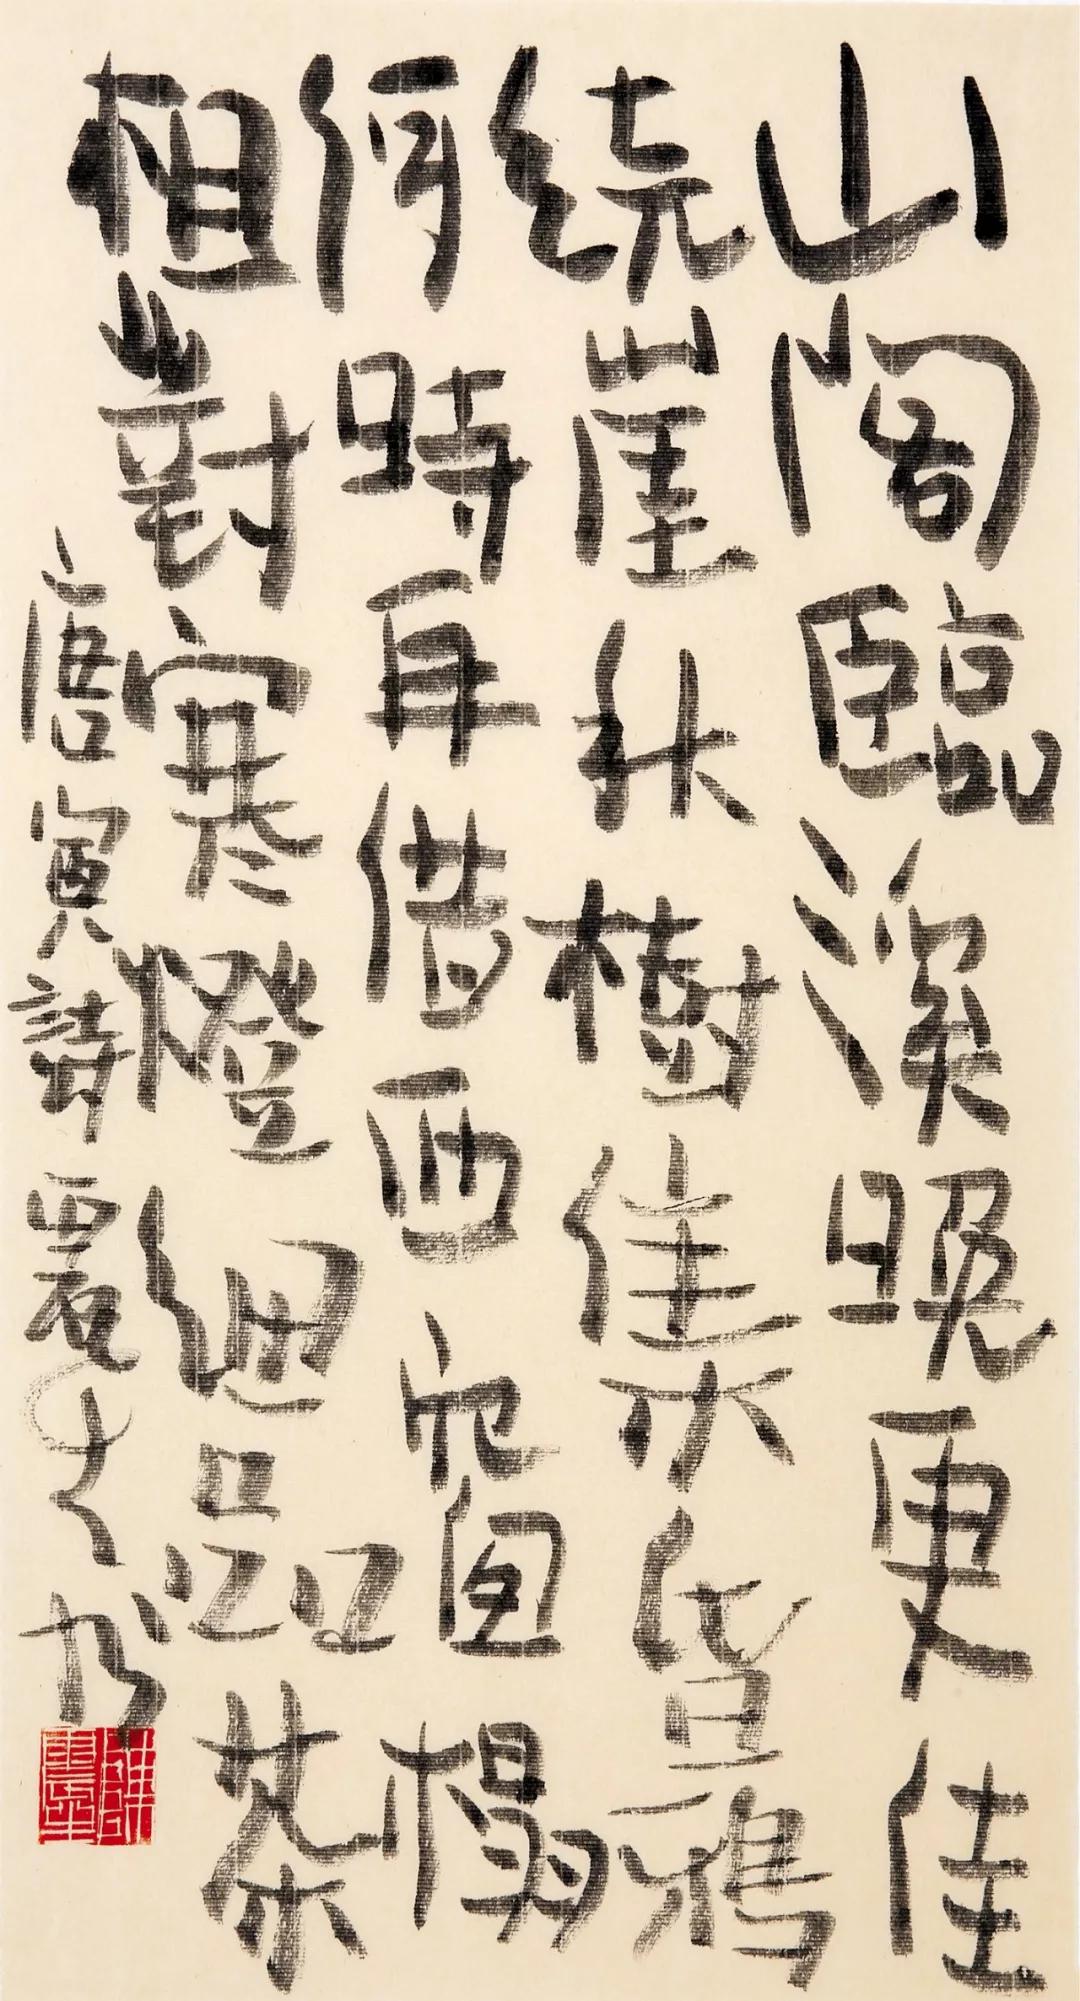 山閣臨溪晚更佳
绕崖秋樹集昏鴉
何時再借西窗榻
相對寒燈細品茶
唐寅詩